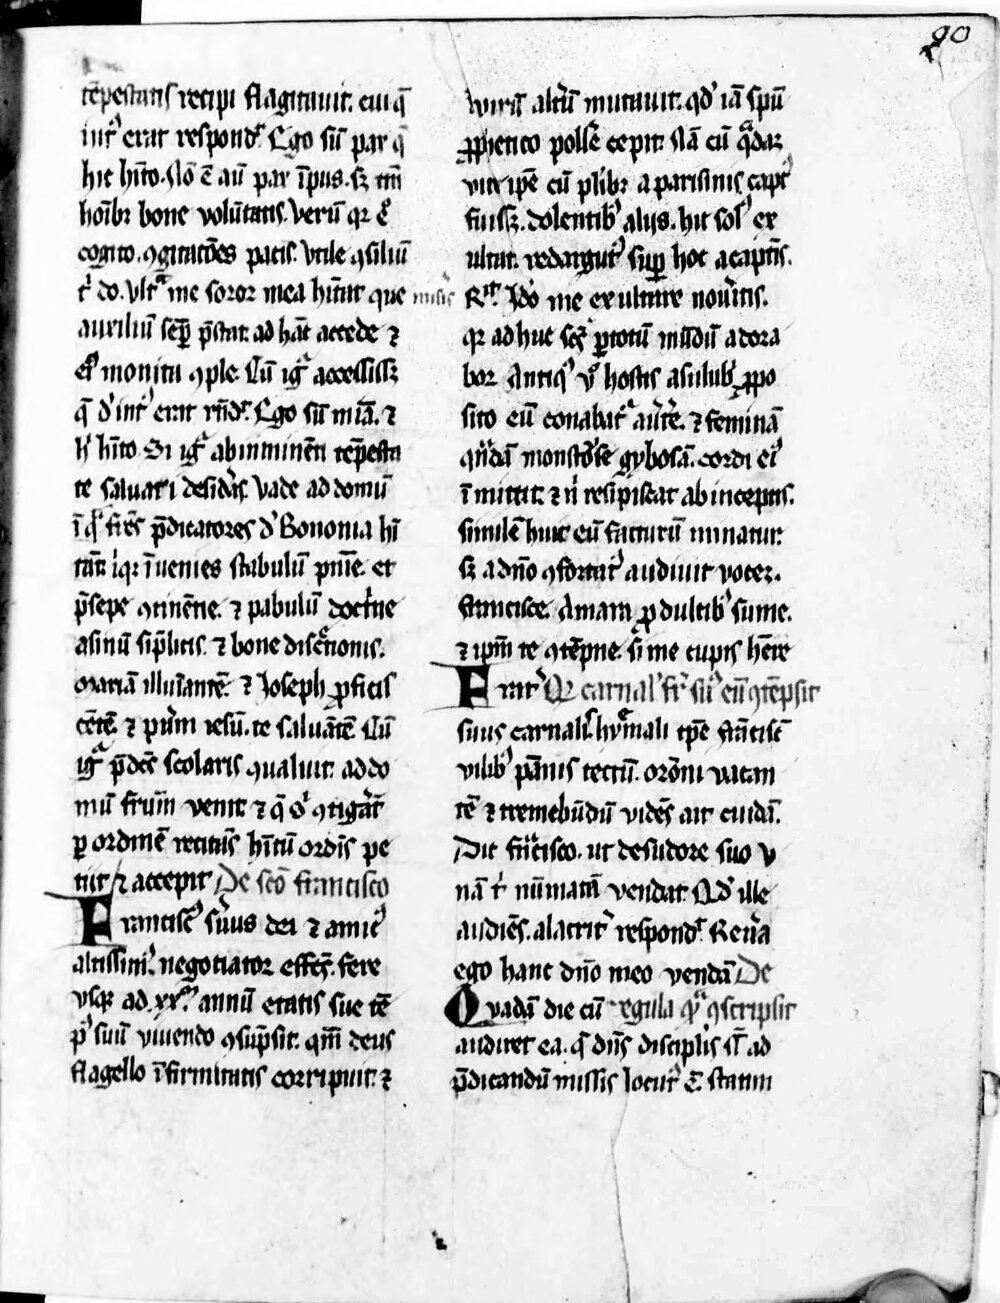 90
te᷒pestatis recipi flagitauit. cui q̄
int᷒ erat respond᷒. Ego sū pax q̄
hic hīto. Nō ē aū pax īpus. sꝫ tm̄
hoībꝫ bone volūtatis. Verū qꝛ e᷒
cogito ꝯgitatōes pacis. vtile ꝯsiliū
t᷒ do. vlt᷒ me soror mea hītat que mis᷒
auxiliū sēp p̄stat. ad hāc accede ⁊
ei᷒ monita ꝯple. Cū ig᷒ accessissꝫ
q̄ d᷒ int᷒ erat rn̄d᷒. Ego sū mīa. ⁊
h᷒ hīto Si ig᷒ ab inminēti tēpesta
te saluari desid᷒as vade ad domū
ī q᷒ fr̄es p̄dicatores d᷒ Bononia hī
tāt. iqꝛ īuenies stabulū pnīe. et
p̄sepe ꝯtinētie. ⁊ pabulū doct᷒ne
asinū sīplicitis. ⁊ bone discr̄tionis.
mariā illuīantē. ⁊ Joseph ꝓficis
cētē. ⁊ puȝm iesū. te saluātē. Cū
ig᷒ p̄dc̄s scolaris qualuit. ad do
mū fr̄um venit ⁊ q̄ s᷒ ꝯtig᷒at
ꝑ ordinē recitās hītū ordīs pe
tiit ⁊ accepit De scō francisco
Francisc᷒ s᷒uus dei ⁊ amic᷒
altissimi. negotiator effcs̄. fere
vsqꝫ ad .xx. annū etatis sue tē
p᷒ suū viuendo ꝯsūpsit. qm̄ deus
flagello īfirmitatis corripuit. ⁊
virū alt᷒ū mutauit. qd᷒ iā spū
ꝓphetico poll᷒e cepit. Nā cū q᷒daꝫ
vice ip̄e cū plibꝫ a parisinis capt᷒
fuissꝫ. dolentib᷒ alijs. hic sol᷒ ex
ultat. redarguit᷒ suꝑ hoc a captīs.
Rn̄t. Jdo me exultare noueritis.
qꝛ adhuc scs̄ ꝑ totū mūdū adora
bor Antiq᷒ v᷒ hostis a salub᷒ ꝓpo
sito eū conabat᷒ au᷒tē. ⁊ feminā
qn̄dā monst᷒ose gybosā. cordi ei᷒
īmittit. ⁊ n᷒ resipiscat ab inceptis.
similē huic eū facturū minatur.
sꝫ a dn̄o ꝯfortat᷒ audiuit vocez.
Francisce. Amara ꝓ dulcib᷒ sume.
⁊ ipm̄ te ꝯtēpne. si me cupis hēre
Frat᷒ Qꝛ carnal᷒ fr᷒ su᷒ eū ꝯtēpsit
suus carnalis. hy᷒mali tp̄e fr̄ancisc᷒
vilib᷒ pānis tectū. orōni vacan
tē ⁊ tremebūdū vidēs ait cuidā.
Dic frācisco. ut de sudore suo v
nā t᷒ nūmatā vendat. Qd᷒ ille
audiēs. alacrit᷒ respond᷒. Reu᷒a
ego hanc dn̄o meo vendā De
Quadā die cū regula q᷒ ꝯscripsit
audiret ea. q̄ dn̄s disciplis s᷒ ad
p̄dicandū missis locut᷒ ē statim